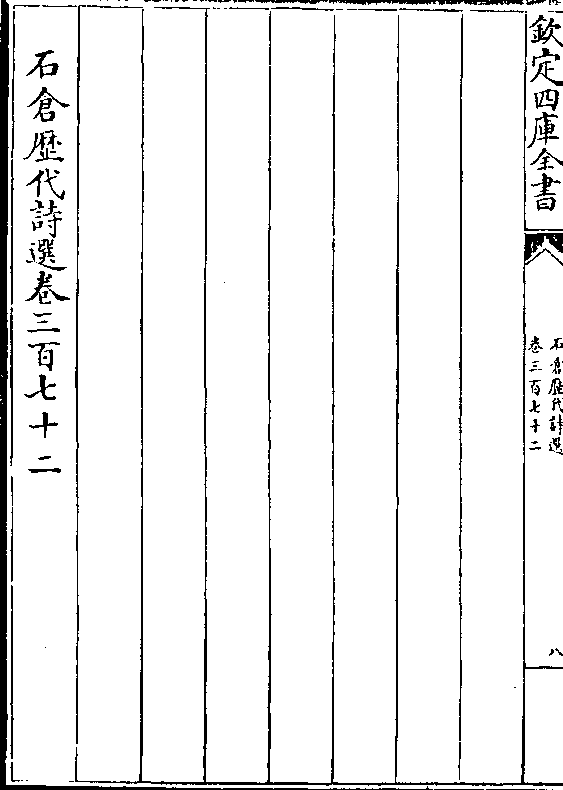 欽定四庫全書
石倉歷代詩選
卷三百七十二
八
石倉歷代詩選卷三百七十二